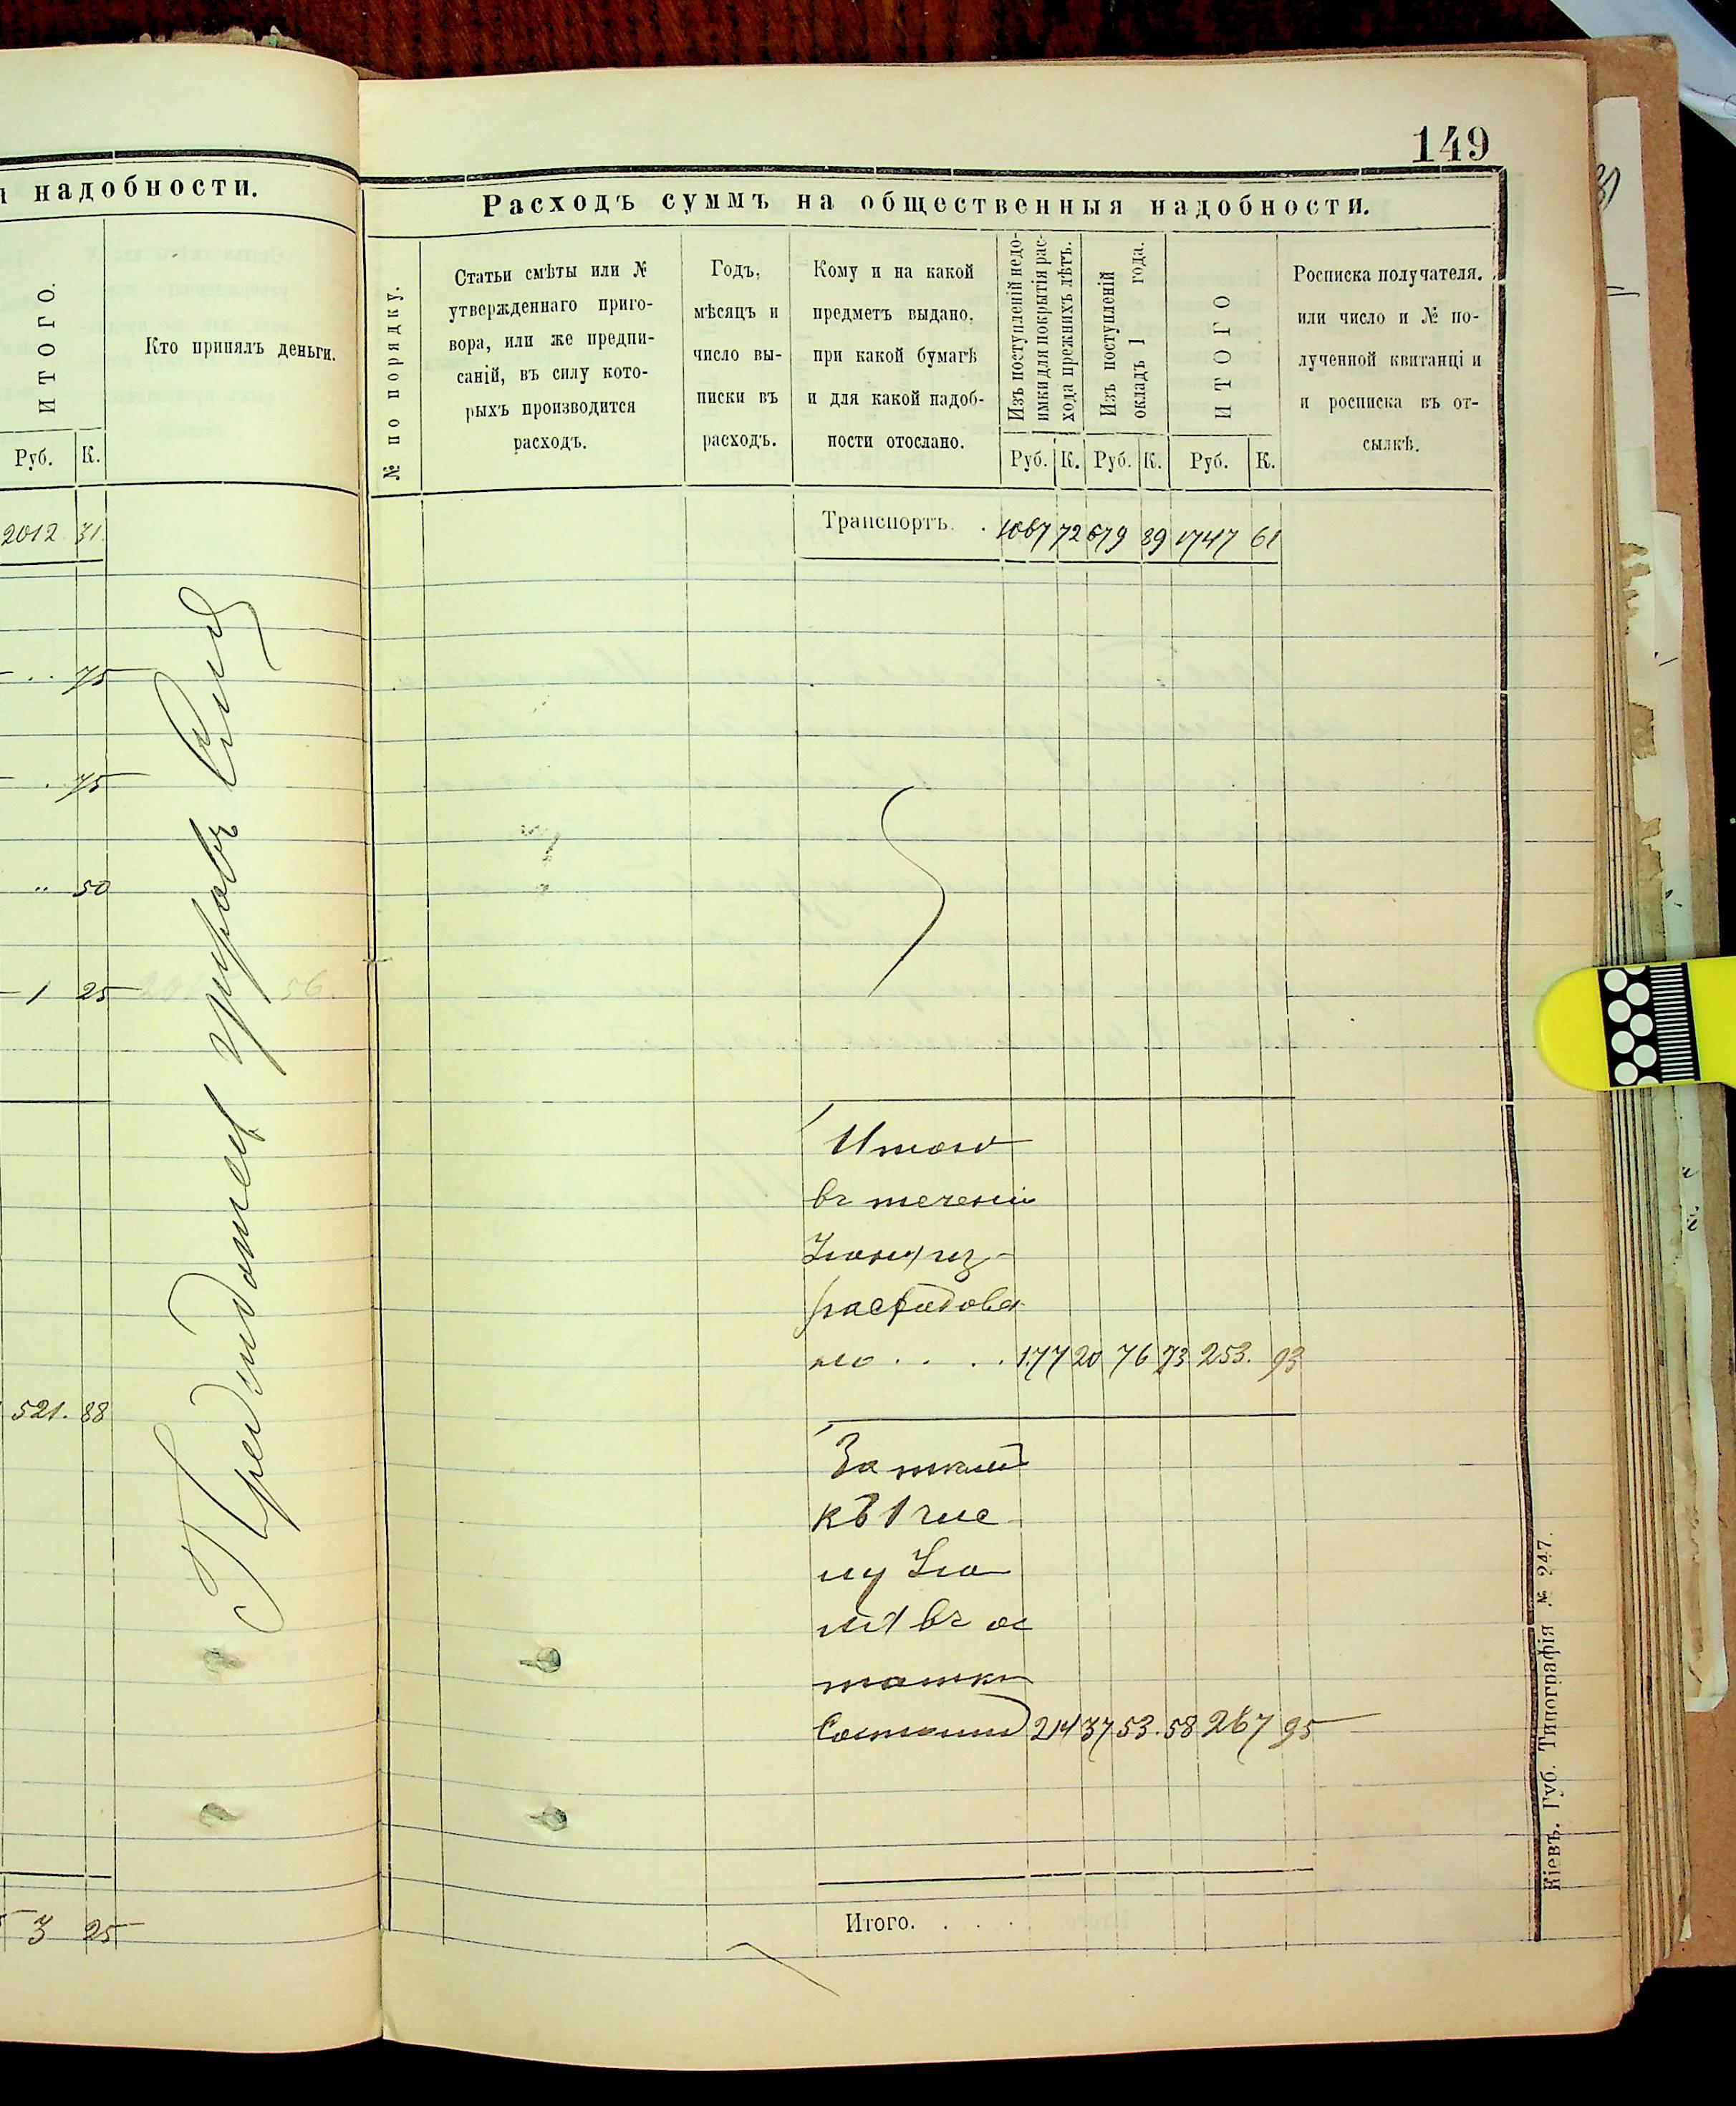 149
надобности.
ИТОГО.
Кто принялъ деньги.
Руб. К.
2012 31
75
75
50
1 25
521. 88
3 25
Расходъ суммъ на общественныя надобности.
№ по порядку.
Статьи смѣты или №
утвержденнаго приго-
вора, или же предпи-
саній, въ силу кото-
рыхъ производится
расходъ.
Годъ,
мѣсяцъ и
число вы-
писки въ
расходъ.
Кому и на какой
предметъ выдано,
при какой бумагѣ
и для какой надоб-
ности отослано.
Изъ поступленій недо-
имки для покрытія рас-
хода прежнихъ лѣтъ.
Изъ поступленій
окладъ 1 года.
ИТОГО
Росписка получателя.
или число и № по-
лученной квитанціи
и росписка въ от-
сылкѣ.
Руб. К. Руб. К. Руб. К.
Транспортъ. . 1067 72 679 89 1747 61
Итого
въ теченіи
расходова
но . . . . 177 20 76 73 253. 93
За тѣмъ
къ 1 чис
лу Iю
ля въ ос
татки
Состоитъ 214 37 53. 58 267 95
Итого. . . .
Кіевъ. Губ. Типографія № 247.